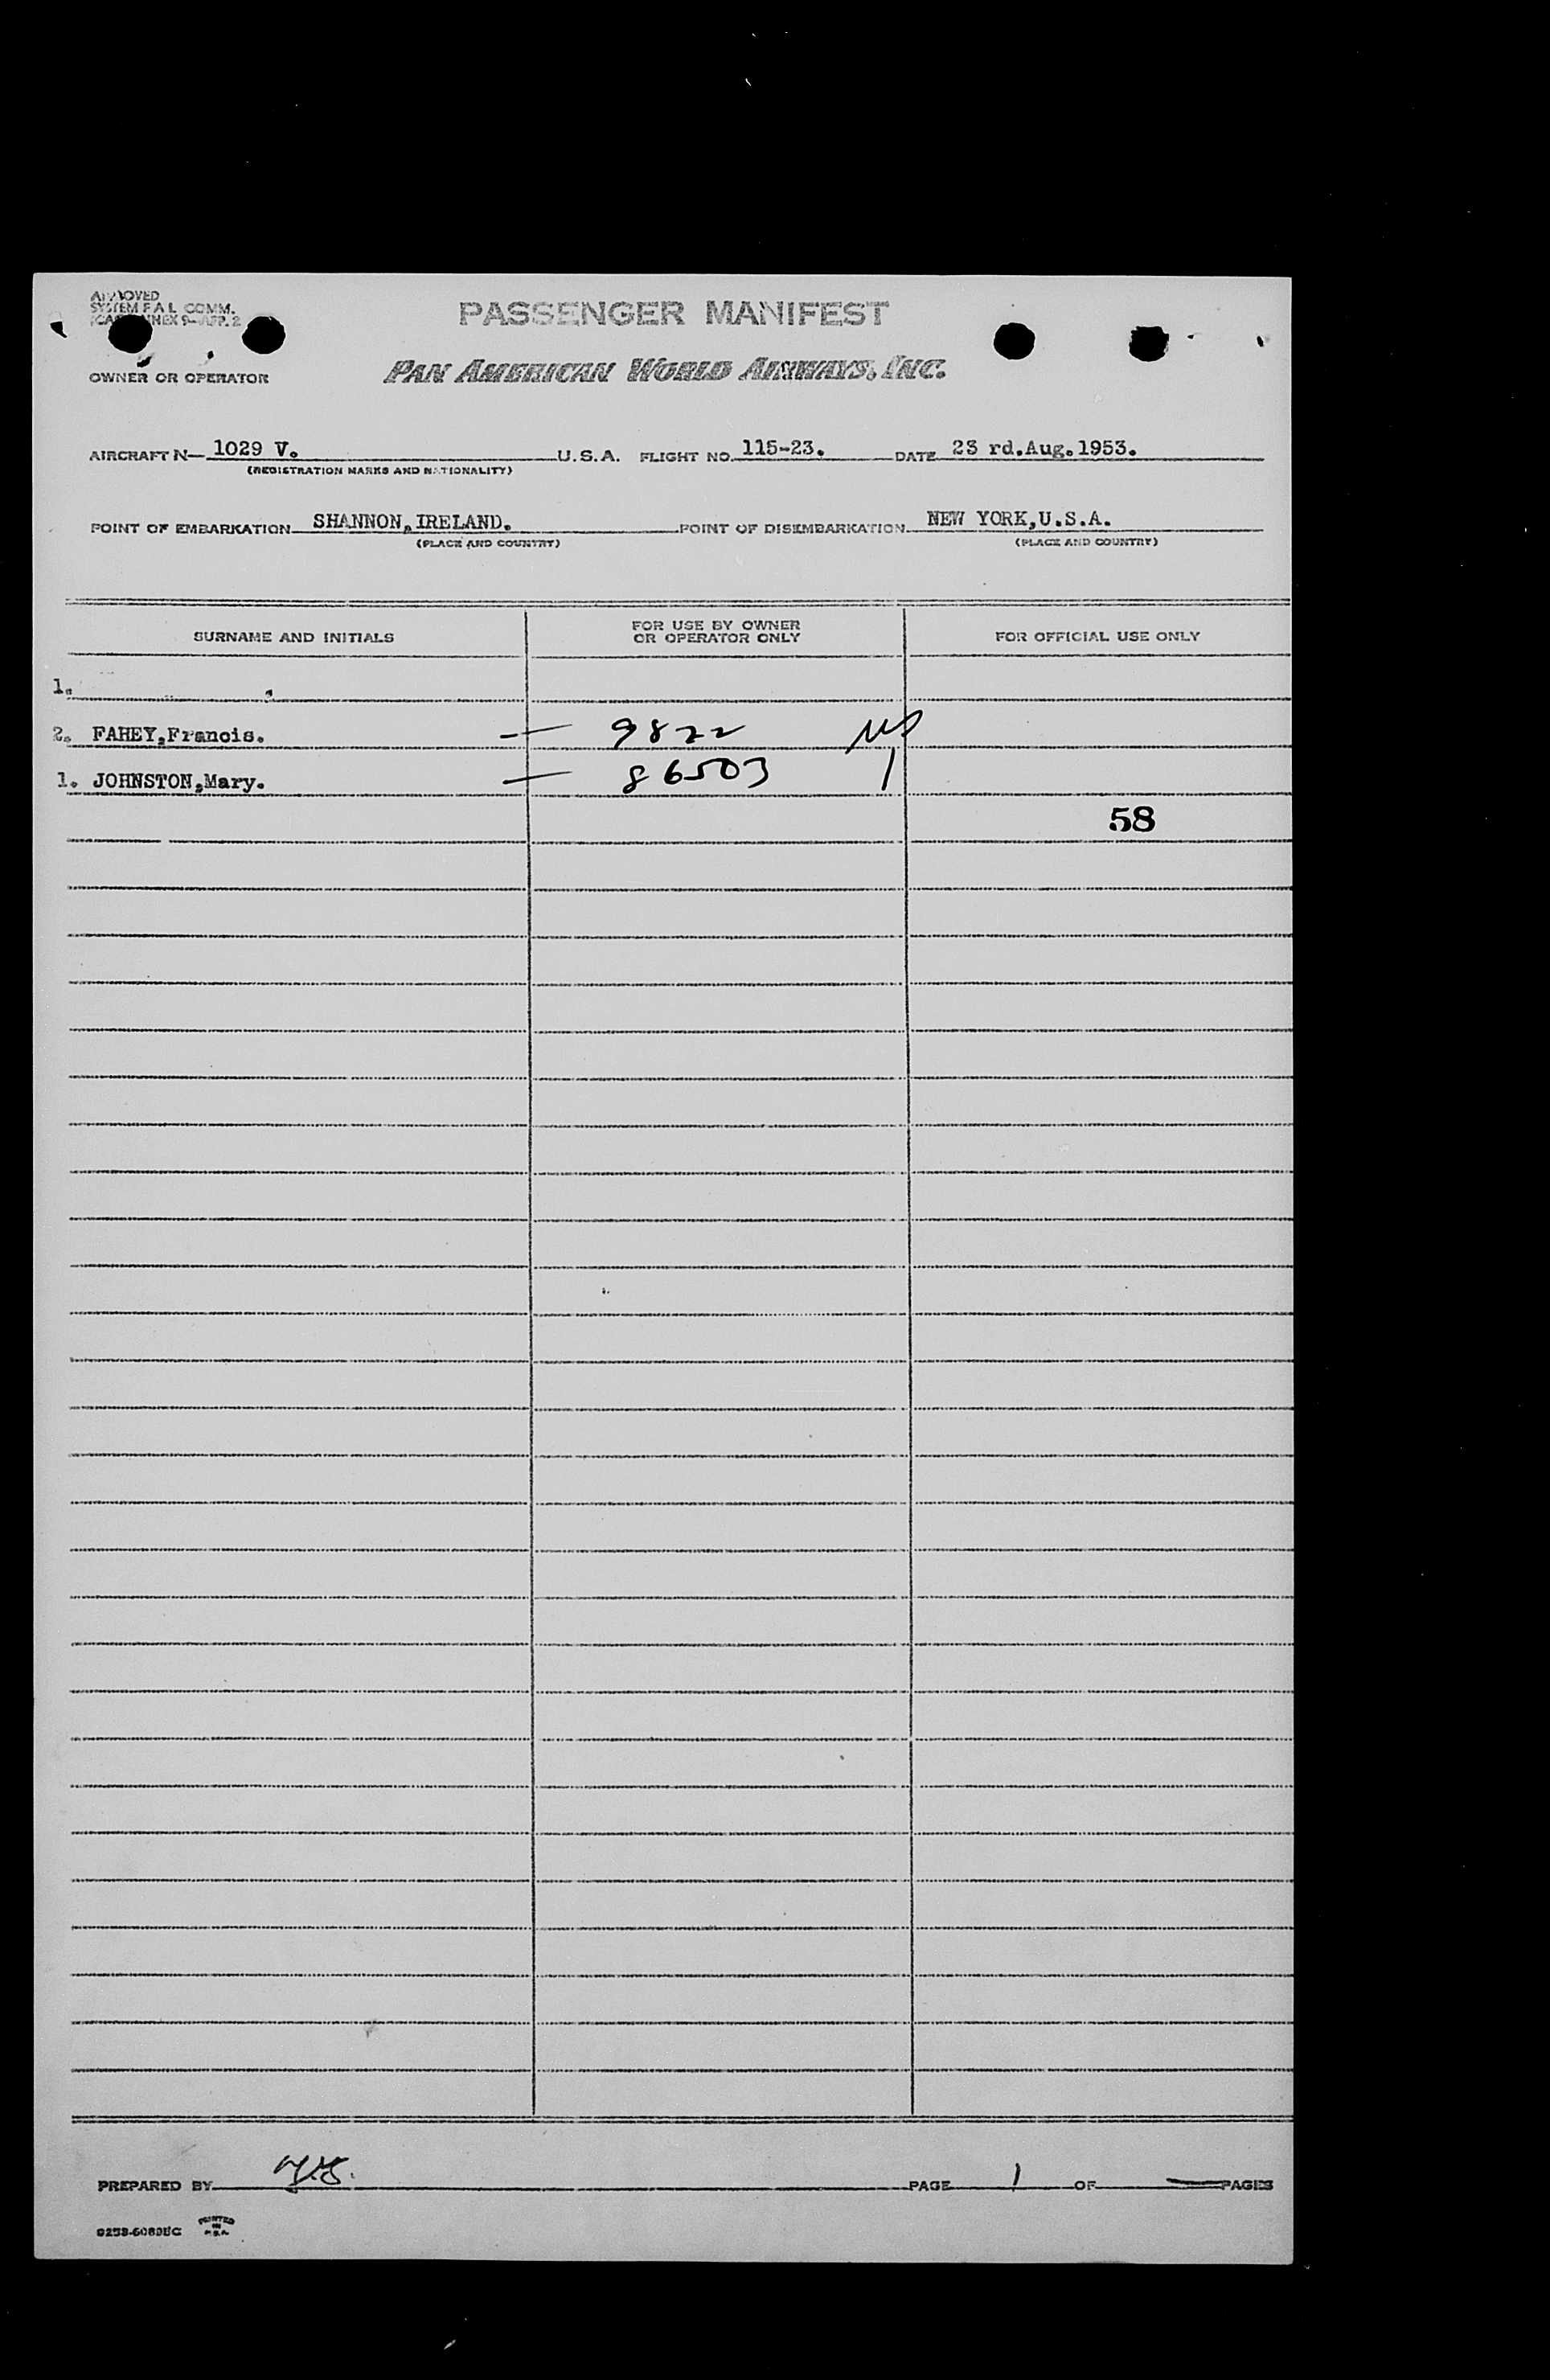 APPROVED
SYSTEM F A L COMM.
PASSENGER MANIFEST
OWNER OR OPERATOR PAN AMERICAN WORLD AIRWAYS, INC.
AIRCRAFT N— 1029 V. U.S.A. FLIGHT NO. 115-23. DATE 23 rd.Aug.1953.
(REGISTRATION MARKS AND NATIONALITY)
POINT OF EMBARKATION SHANNON,IRELAND. POINT OF DISEMBARKATION NEW YORK,U.S.A.
(PLACE AND COUNTRY) (PLACE AND COUNTRY)
SURNAME AND INITIALS FOR USE BY OWNER OR OPERATOR ONLY FOR OFFICIAL USE ONLY
1.
2. FAHEY,Francis. — 9822
1. JOHNSTON,Mary. — 86503 1
58
PREPARED BY PAGE 1 OF — PAGES
PRINTED
IN
U.S.A.